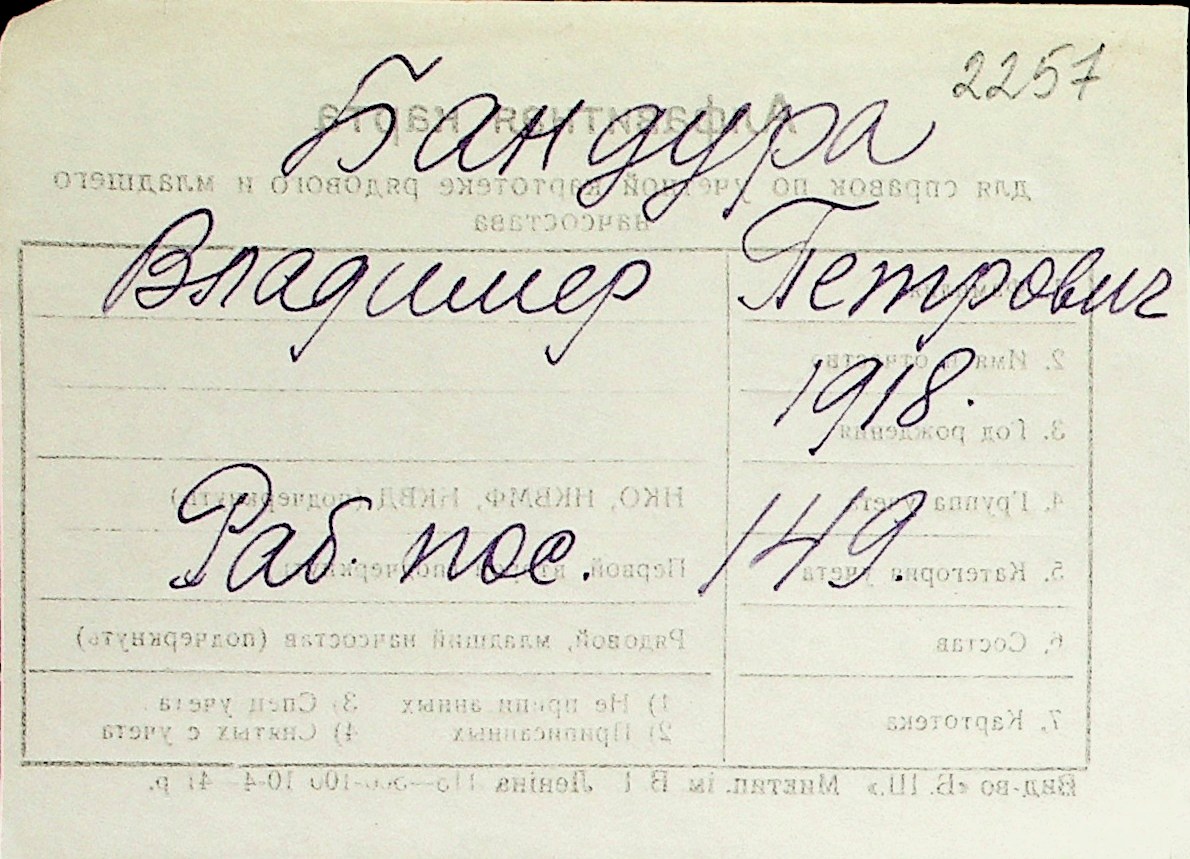 2257
Бандура
Алфавитная карта
для справок по учетной картотеке рядового и младшего
начсостава
Владимер Петрович
2. Имя и отчество
1918.
3. Год рождения
4. Группа учета НКО, НКВМФ, НКВД (подчеркнуть)
Раб. пос. 149.
5. Категория учета Первой, второй (подчеркнуть)
6. Состав Рядовой, младший начсостав (подчеркнуть)
7. Картотека
1) Не приписанных 3) Спец учета
2) Приписанных 4) Снятых с учета